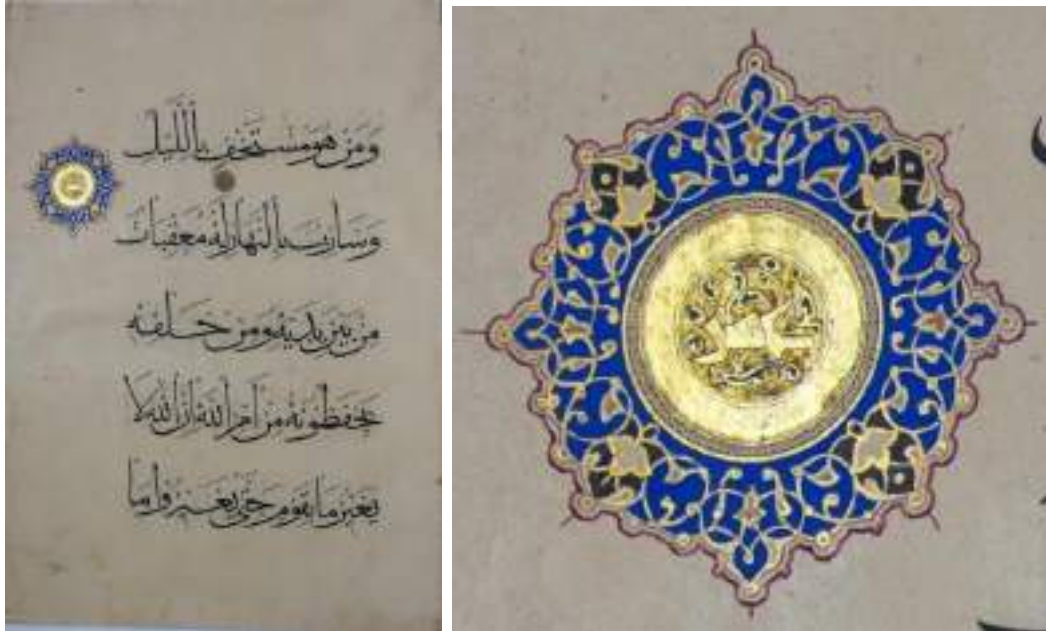 ومن هو مستخف بالليل
وسارب بالنهار له معقبات
من بين يديه ومن خلفه
يحفظونه من امر الله ان الله لا
يغير ما بقوم حتى يغيروا ما